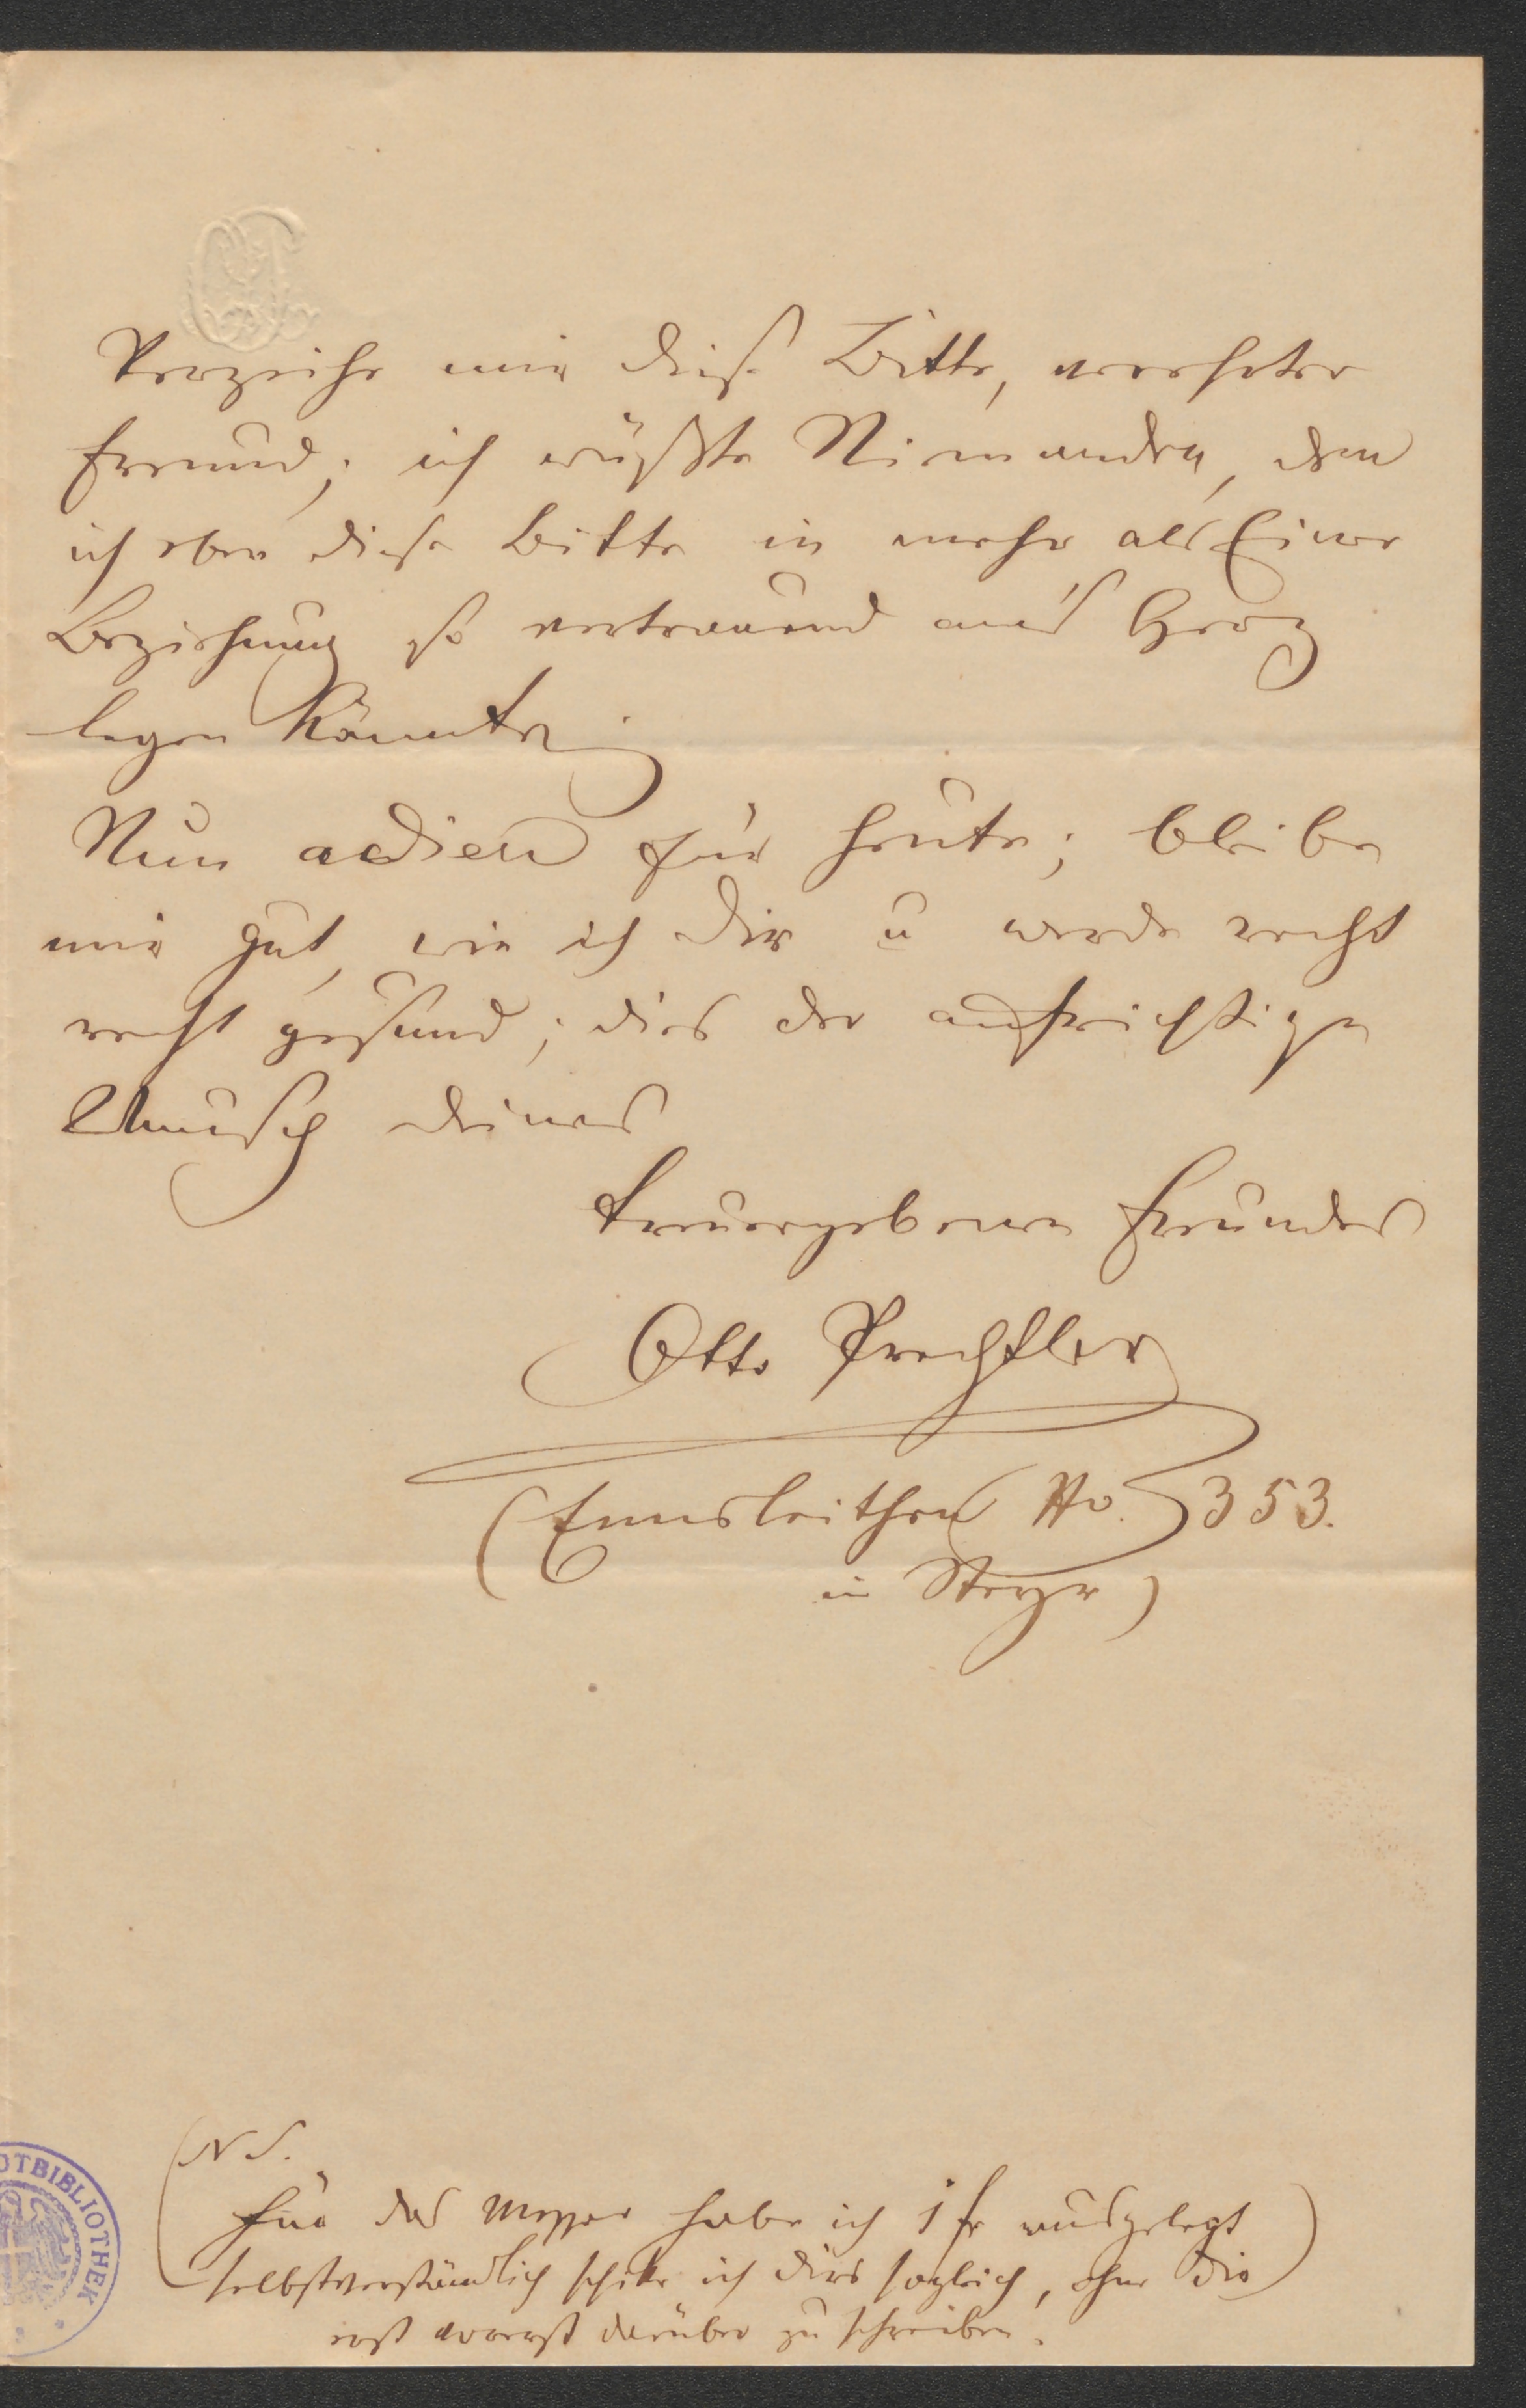 Verzeihe mir diese Bitte, verehrter
Freund; ich wüßte Niemanden, dem
ich eben diese Bitte in mehr als Einer
Beziehung so vertrauend an's Herz
legen könnte.
Nun adieu für heute; bleibe
mir gut, wie ich Dir u werde recht
recht gesund; dies der aufrichtige
Wunsch deines
treuergebenen Freundes
Otto Prechtler
(Ennsleithen No. 353.
in Steyr)
(NS.
Für das Messer habe ich 1 fr ausgelegt
selbstverständlich schike ich dirs sogleich, ohne Dir)
erst vorerst darüber zu schreiben.
OTBIBLIOTHEK